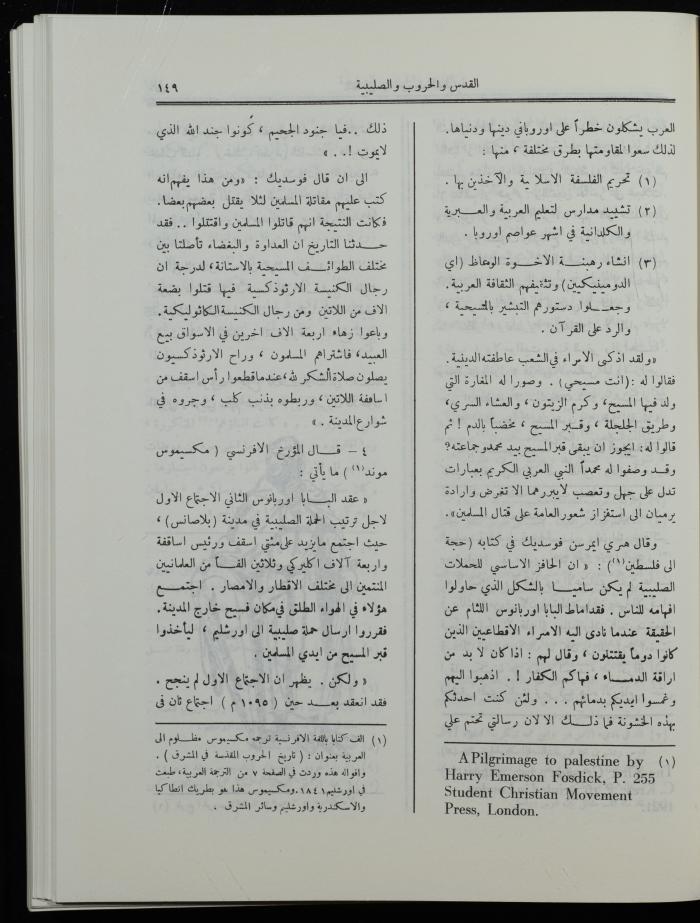 القدس والحروب والصليبية
١٤٩
العرب يشكلون خطراً على اوروبافي دينها ودنياها.
لذلك سعوا لمقاومتها بطرق مختلفة ، منها :
(١) تحريم الفلسفة الاسلامية والآخذين بها .
(٢) تشييد مدارس لتعليم العربية والعــبرية
والكلدانية في اشهر عواصم اوروبا .
(٣) انشاء رهبنــة الاخــوة الوعاظ (اي
الدومينيكيين) وتثقيفهم الثقافة العربية.
وجعــلوا دستورهم التبشير بالمسيحية ،
والرد على القرآن .
«ولقد اذكى الامراء في الشعب عاطفته الدينية.
فقالوا له : (انت مسيحي) . وصورا له المغارة التي
ولد فيها المسيح، وكرم الزيتون ، والعشاء السري،
وطريق الجلجلة ، وقـبر المسيح ، مخضباً بالدم ! ثم
قالوا له: ايجوز ان يبقى قبر المسيح بيد محمد وجماعته؟
وقـد وصفوا له محمداً النبي العربي الكريم بعبارات
تدل على جهل وتعصب لا يبررهما الا تغرض وارادة
يرميان الى استفزاز شعور العامة على قتال المسلمين».
وقال هـري ايمرسن فوسديك في كتابه (حجة
الى فلسطين(١)) : « ان الحافز الاساسي للحملات
الصليبية لم يكن ساميــا بالشكل الذي حاولوا
افهامه للناس . فقد اماط البابا اوربانوس اللثام عن
الحقيقة عندما نادى اليه الامـراء الاقطاعيين الذين
كانوا دوماً يقتتلون ، وقال لهم : اذا كان لا بد من
اراقة الدمــاء ، فهاكم الكفار ! . اذهبوا اليهم
وغمسوا ايديكم بدمائهم . . . ولئن كنت احدثكم
بهذه الخشونة فما ذلــك الا لان رسالتي تحتم علي
(١) A Pilgrimage to palestine by
Harry Emerson Fosdick, P. 255
Student Christian Movement
Press, London.
ذلك ..فيا جنود الجحيم ، كونوا جند الله الذي
لايموت ! . . »
الى ان قال فوسديك : «ومن هذا يفهم انه
كتب عليهم مقاتلة المسلمين لئلا يقتل بعضهم بعضا.
فكانت النتيجة انهم قاتلوا المسلمين واقتتلوا .. فقد
حـدثنا التاريخ ان العداوة والبغضاء تأصلتا بين
مختلف الطوائــف المسيحية بالاستانة، لدرجة ان
رجال الكنيسة الارثوذكسية فيها قتلوا بضعة
الاف من اللاتين ومن رجال الكنيسة الكاثوليكية.
وباعوا زهاء اربعة الاف اخرين في الاسواق بيع
العبيد، فاشتراهم المسلمون ، وراح الارثوذكسيون
يصلون صلاة الشكر لله، عندما قطعوا رأس اسقف من
اساقفة اللاتين ، وربطوه بذنب كلب ، وجروه في
شوارع المدينة . »
٤ – قــال المؤرخ الافرنسي ( مكسيموس
موند(١) ) ما يأتي :
« عقد البــابا اوربانوس الثاني الاجتماع الاول
لاجل ترتيب الحملة الصليبية في مدينة (بلاصانس) ،
حيث اجتمع مايزيد على مئتي اسقف ورئيس اساقفة
واربعة آلاف اكليركي وثلاثين الفــاً من العلمانيين
المنتمين الى مختلف الاقطار والامصار . اجتمــع
هؤلاء في الهواء الطلق في مكان فسيح خارج المدينة.
فقرروا ارسال حملة صليبية الى اورشليم ، ليأخذوا
قبر المسيح من ايدي المسلمين .
« ولكن . يظهر ان الاجتماع الاول لم ينجح .
فقد انعقد بعــد حين ( ١٠٩٥ م ) اجتماع ثان في
(١) الف كتابا باللغة الافرنسية ترجمه مكسيموس مظــلوم الى
العربية بعنوان : ( تاريخ الحروب المقدسة في المشرق ) .
واقواله هذه وردت في الصفحة ٧ من الترجمة العربية، طبعت
في اورشليم ١٨٤١. ومكسيموس هذا هو بطريك انطاكيا
والاسكندرية واورشليم وسائر المشرق .